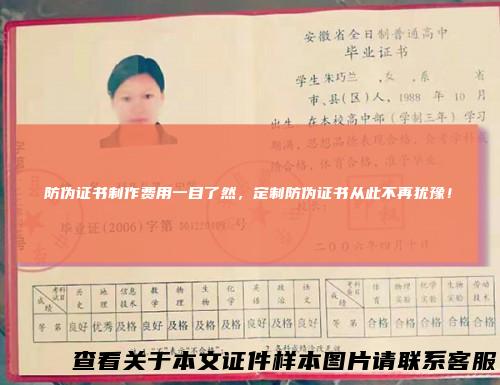 安徽省全日制普通高中
毕业证书
学生 朱巧兰 ,女 , 系 省
市、县(区)人, 1988 年 10 月
出生, 在本校高中部(学制三年)学习
期满, 思想品德表现合格, 会考学科成
绩合格, 体育合格, 准予毕业.
防伪证书制作费用一目了然，定制防伪证书从此不再犹豫！
毕业证(2006)字第 号
二00六年四月十日
考科科目 历史 地理 信息技术 数学 物理 生物 化学 英语 政治 语文
成绩等第 良好 优秀 及格 良好 及格 及格 及格 良好 良好 良好
考查科目 体育 物理实验 化学实验 生物实验 劳动技术
成绩等第 合格 合格 合格 合格 合格
查看关于本文证件样本图片请联系客服